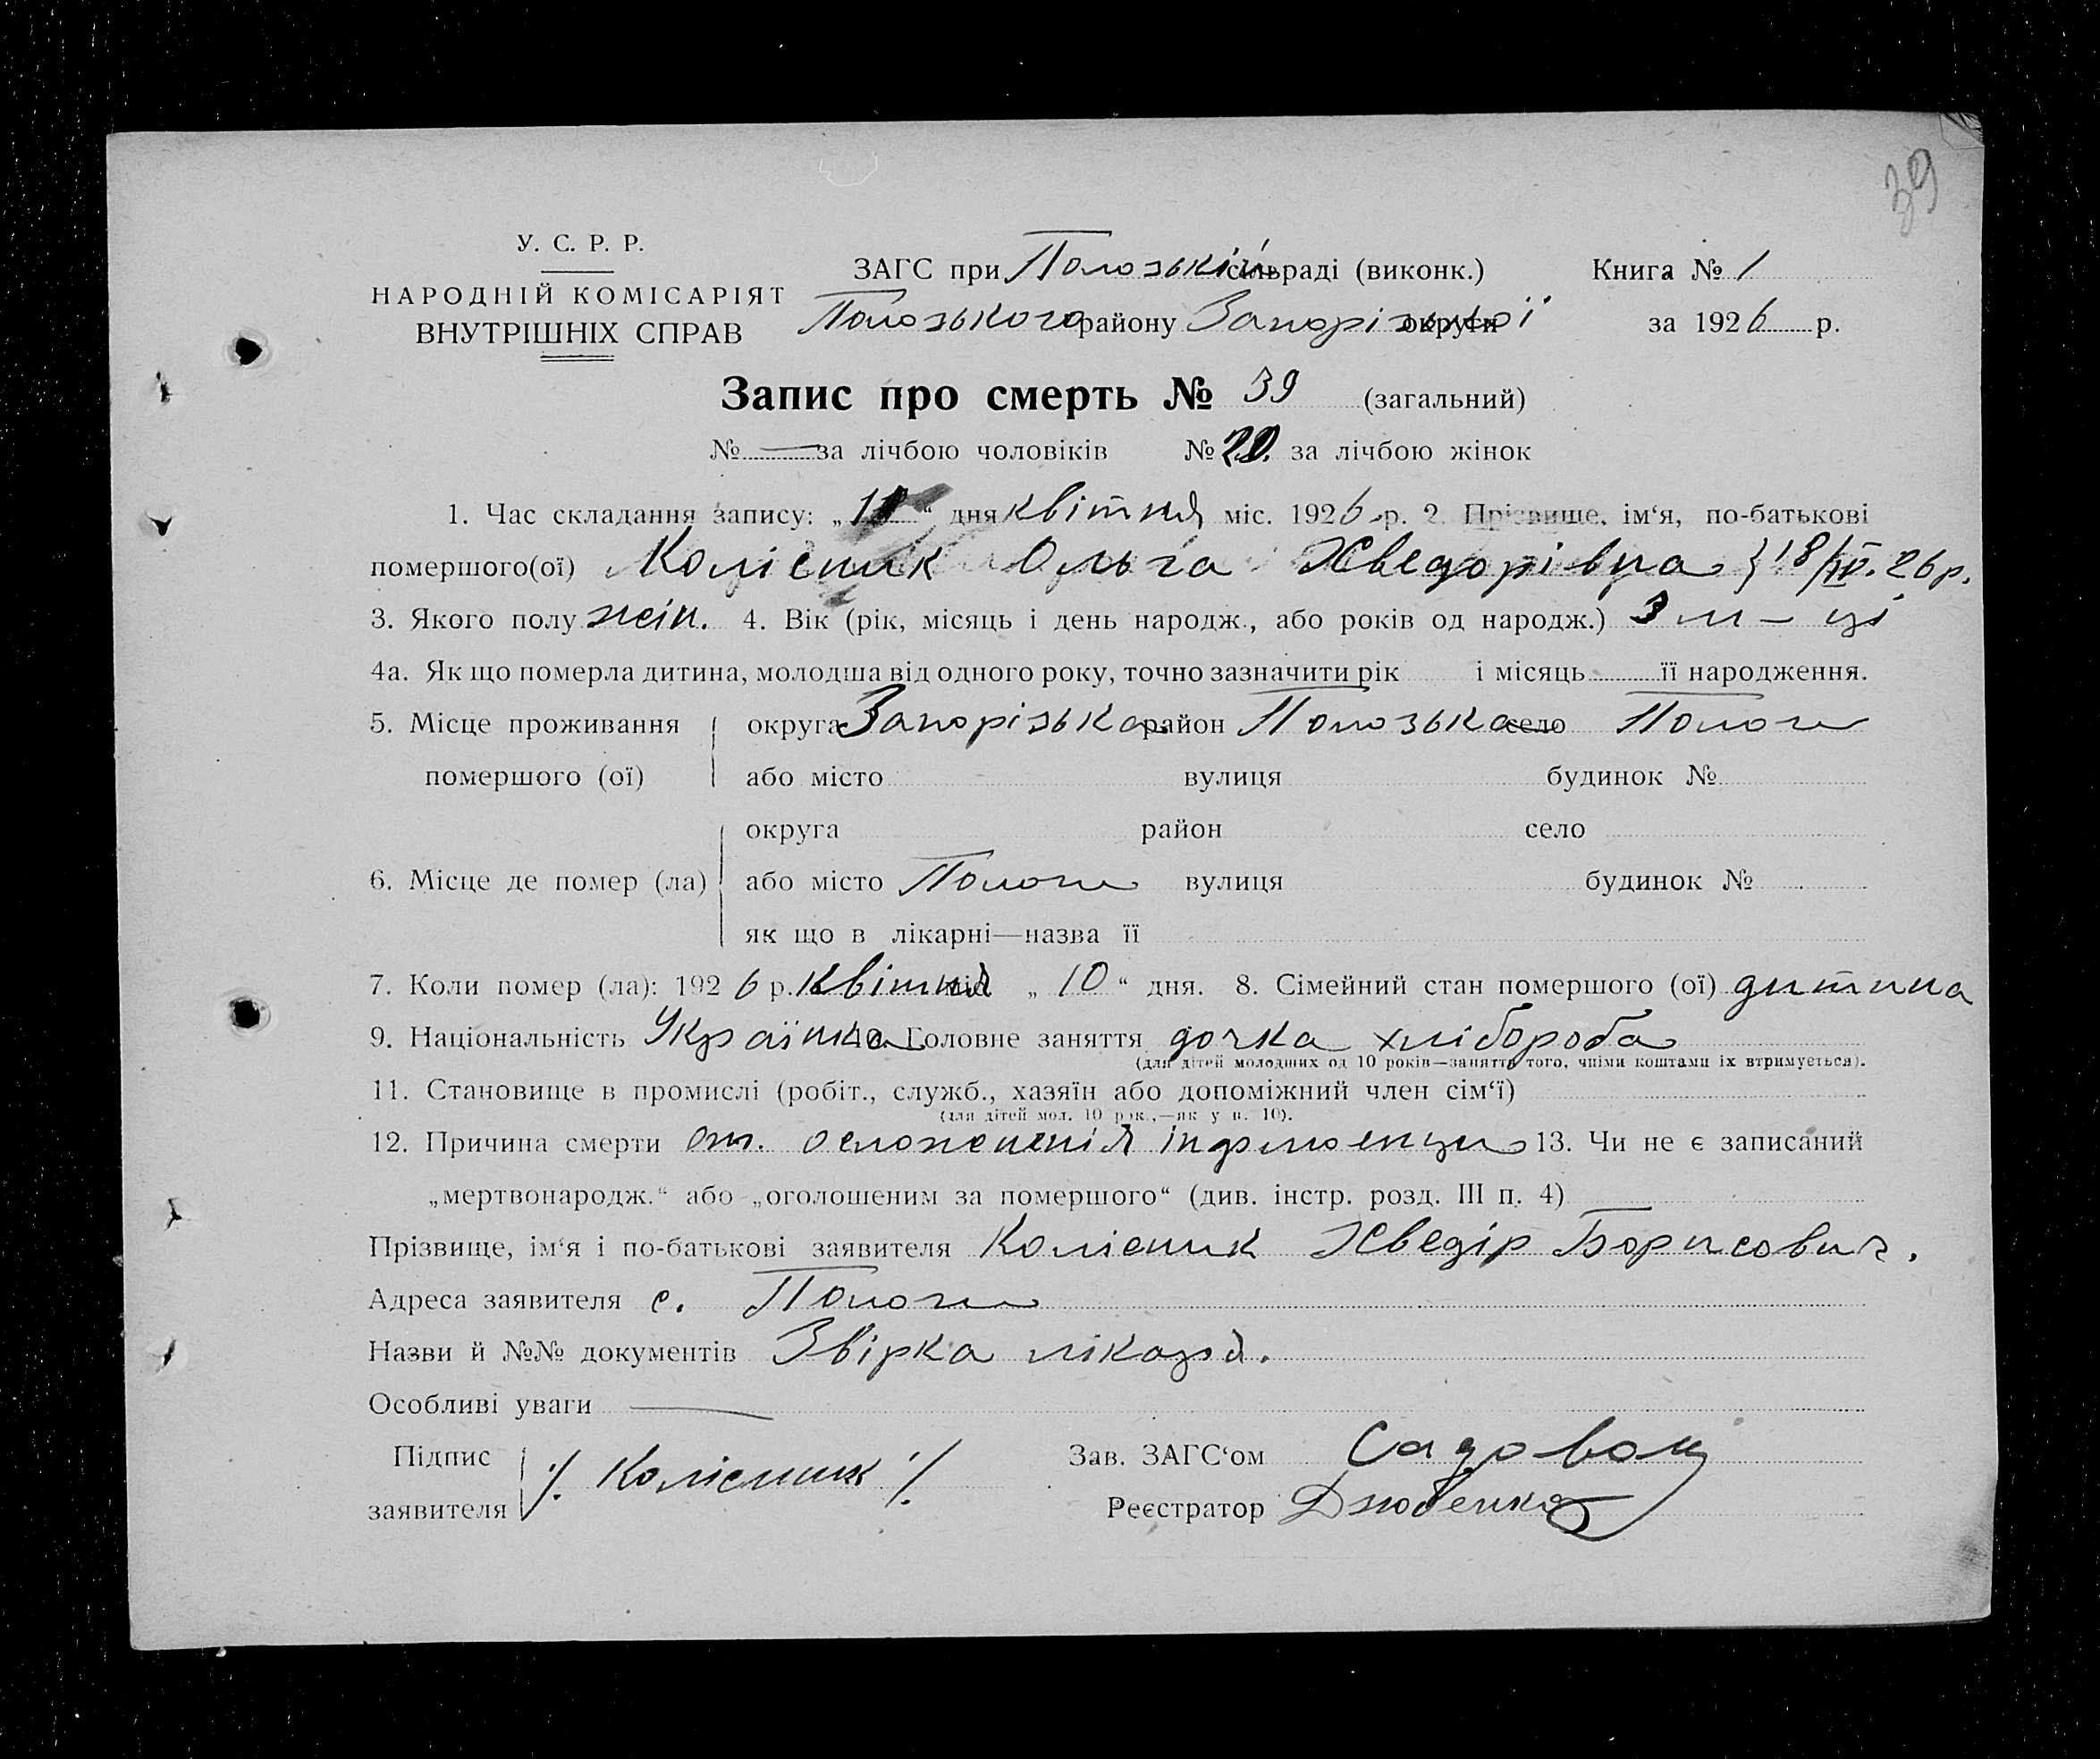 39
У. С. Р. Р.
НАРОДНІЙ КОМІСАРІЯТ
ВНУТРІШНІХ СПРАВ
ЗАГС при Полозькій сільраді (виконк.)
Полозького району Запорізької округи
Книга № 1
за 1926 р.
Запис про смерть № 39 (загальний)
№ — за лічбою чоловіків № 20. за лічбою жінок
1. Час складання запису: „ “ дня квітня міс. 1926 р. 2. Прізвище, ім‘я, по-батькові
помершого(ої) Колісник Ольга Хведорівна } 18/IV. 26 р.
3. Якого полу жін. 4. Вік (рік, місяць і день народж., або років од народж.) 3 м – ці
4а. Як що померла дитина, молодша від одного року, точно зазначити рік і місяць її народження.
5. Місце проживання округа Запорізька район Полозька село Пологи
помершого (ої) або місто вулиця будинок №
округа район село
6. Місце де помер (ла) або місто Пологи вулиця будинок №
як що в лікарні—назва її
7. Коли помер (ла): 1926 р. квітня міс. „ 10 “ дня. 8. Сімейний стан помершого (ої) дитина
9. Національність Українка 10. Головне заняття дочка хлібороба
(для дітей молодших од 10 років—заняття того, чиїми коштами їх втримується).
11. Становище в промислі (робіт., служб., хазяїн або допоміжний член сім‘ї)
(для дітей мол. 10 рок.,—як у п. 10).
12. Причина смерти от. осложненія інфлюенци 13. Чи не є записаний
„мертвонародж.“ або „оголошеним за помершого“ (див. інстр. розд. III п. 4)
Прізвище, ім‘я і по-батькові заявителя Колісник Хведір Борисович.
Адреса заявителя с. Пологи
Назви й №№ документів Звірка лікаря.
Особливі уваги —
Підпис заявителя ·/. Колісник ·/.
Зав. ЗАГС‘ом Садовой
Реєстратор